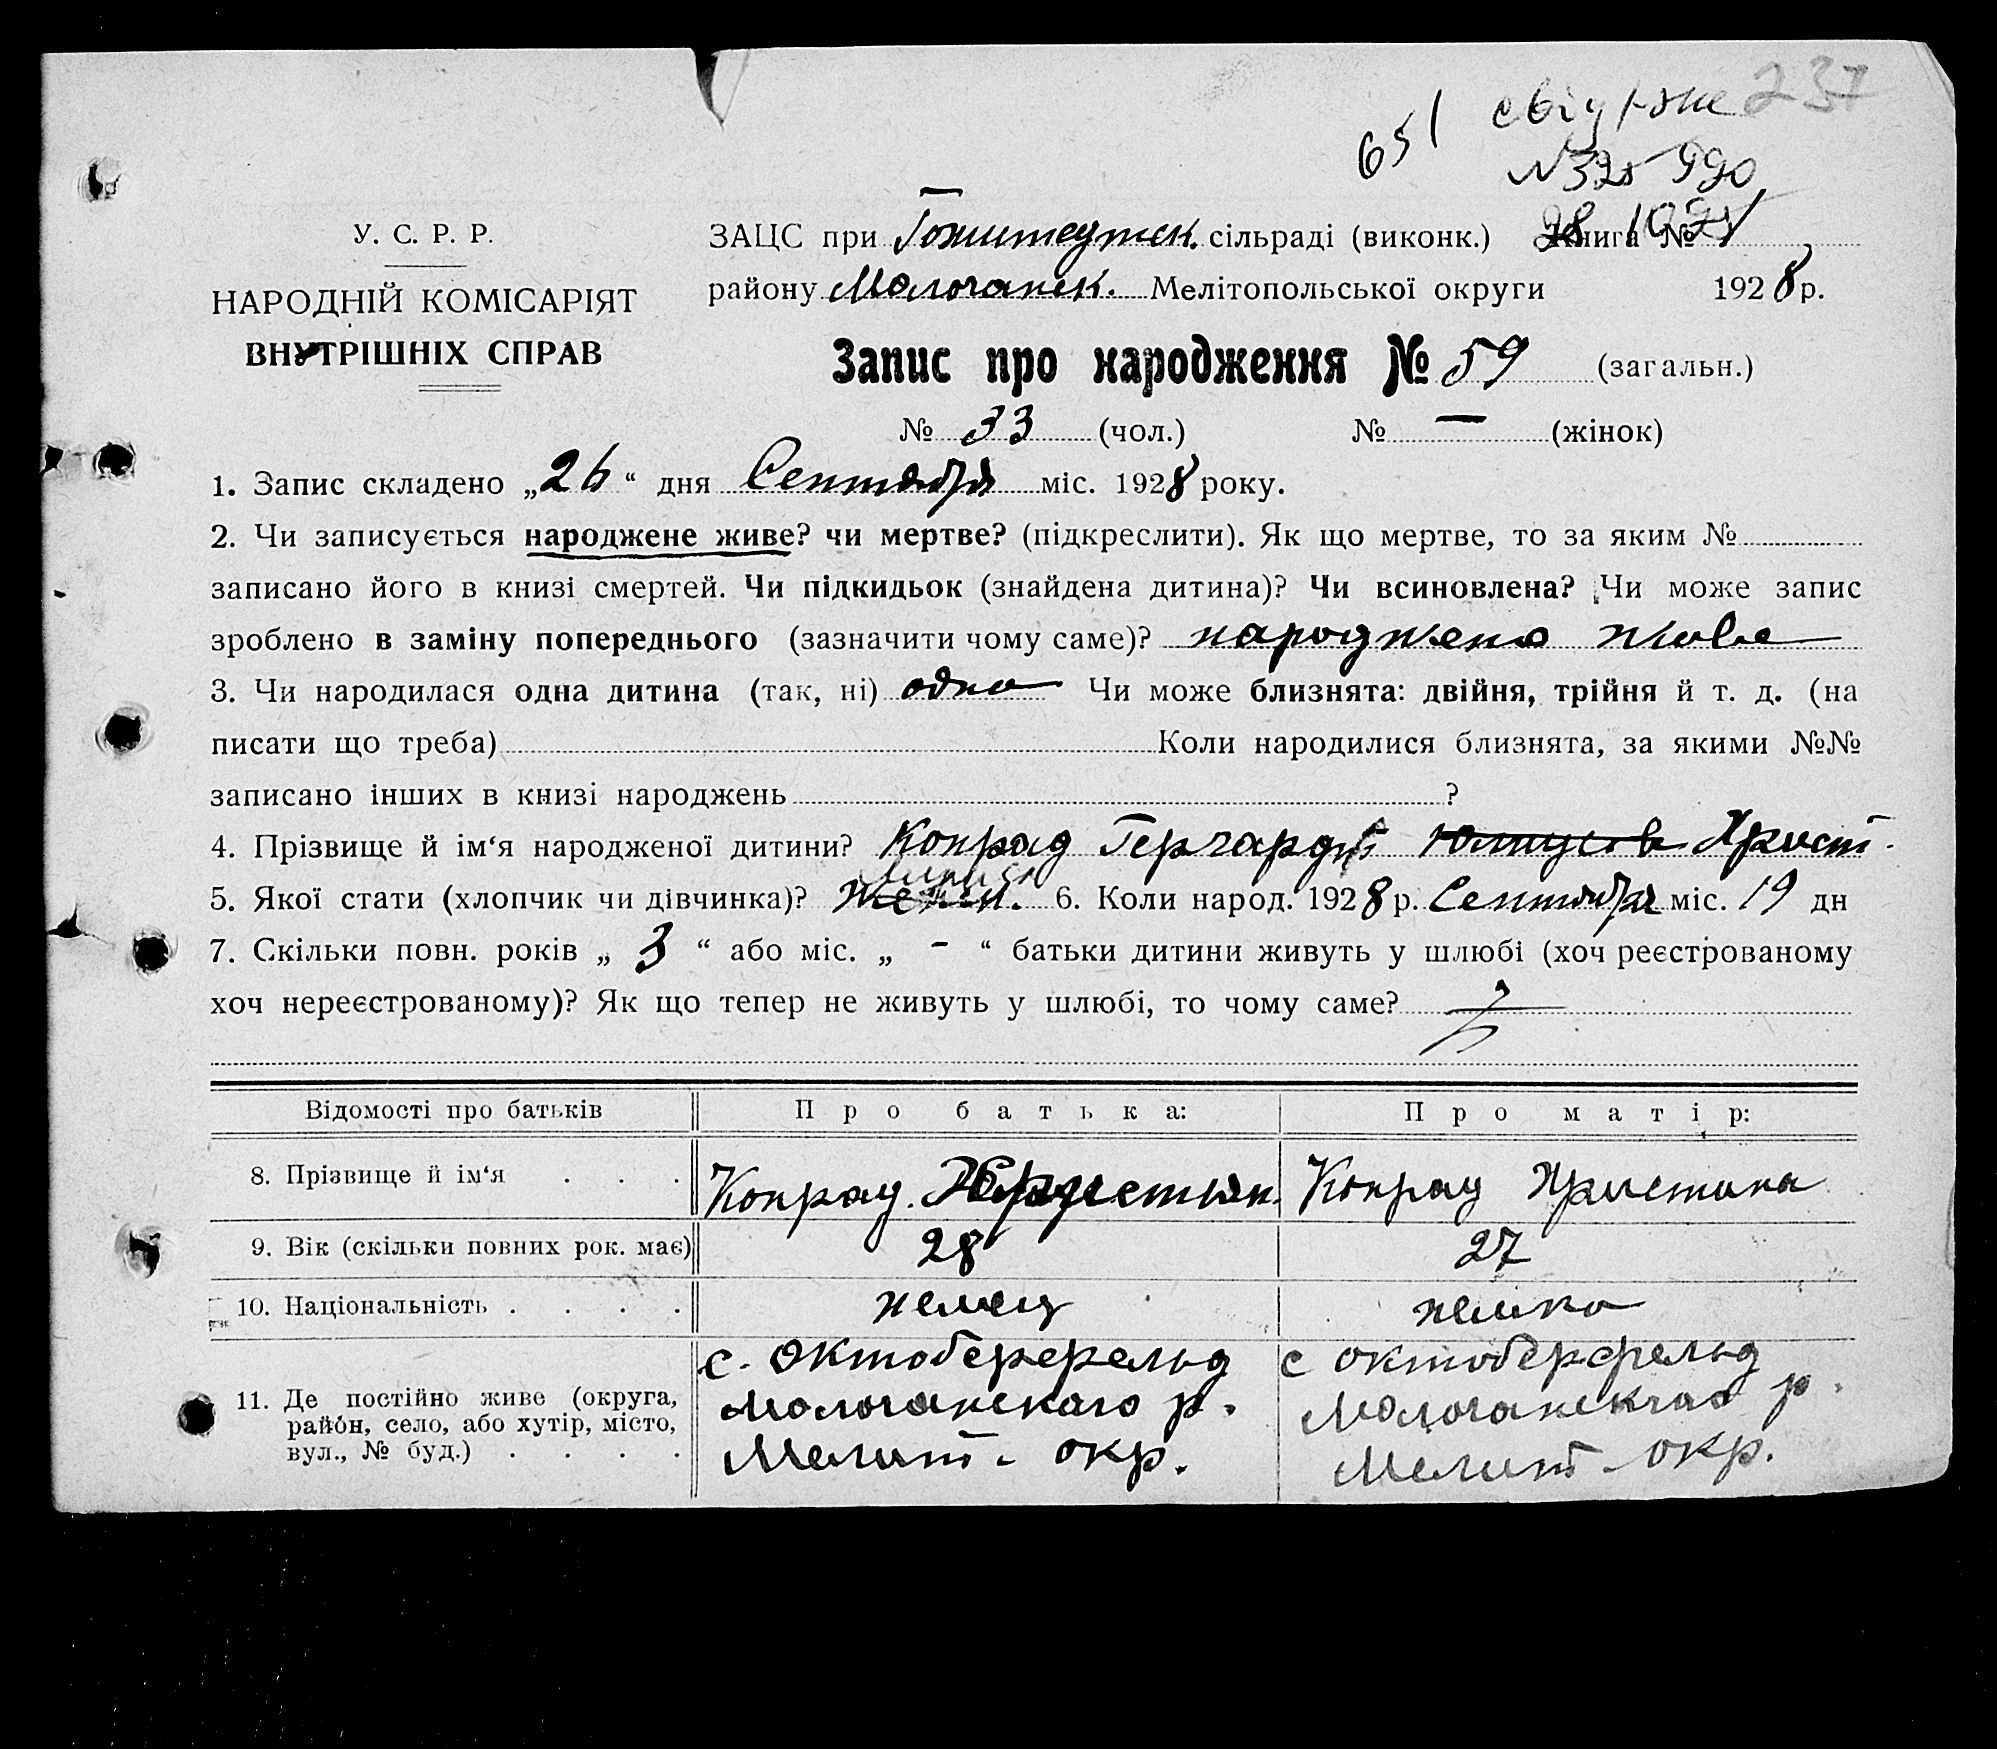 237
651
свідут-не
№ 325 990
У. С. Р. Р.
НАРОДНІЙ КОМІСАРІЯТ
ВНУТРІШНІХ СПРАВ
ЗАЦС при сільраді (виконк.) Книга №
району Молочанск. Мелітопольської округи 1928 р.
Запис про народження № 59 (загальн.)
№ 33 (чол.) № — (жінок)
1. Запис складено „26“ дня Сентября міс. 1928 року.
2. Чи записується народжене живе? чи мертве? (підкреслити). Як що мертве, то за яким №
записано його в книзі смертей. Чи підкидьок (знайдена дитина)? Чи всиновлена? Чи може запис
зроблено в заміну попереднього (зазначити чому саме)? народжено живе
3. Чи народилася одна дитина (так, ні) одна Чи може близнята: двійня, трійня й т. д. (на
писати що треба) Коли народилися близнята, за якими №№
записано інших в книзі народжень ?
4. Прізвище й ім‘я народженої дитини? Конрад Гергард Христ.
5. Якої стати (хлопчик чи дівчинка)? 6. Коли народ. 1928 р. Сентября міс. 19 дн
7. Скільки повн. років „ 3 “ або міс. „ - “ батьки дитини живуть у шлюбі (хоч реєстрованому
хоч нереєстрованому)? Як що тепер не живуть у шлюбі, то чому саме?
Відомості про батьків Про батька: Про матір:
8. Прізвище й ім‘я . . . Конрад Христиан. Конрад Христина
9. Вік (скільки повних рок. має) 28 27
10. Національність . . . . немец немка
11. Де постійно живе (округа, район, село, або хутір, місто, вул., № буд.) . . . .
с. Октоберфельд
Молочанскаго р.
Мелит- окр.
с Октоберфельд
Молочанскаго р.
Мелит- окр.